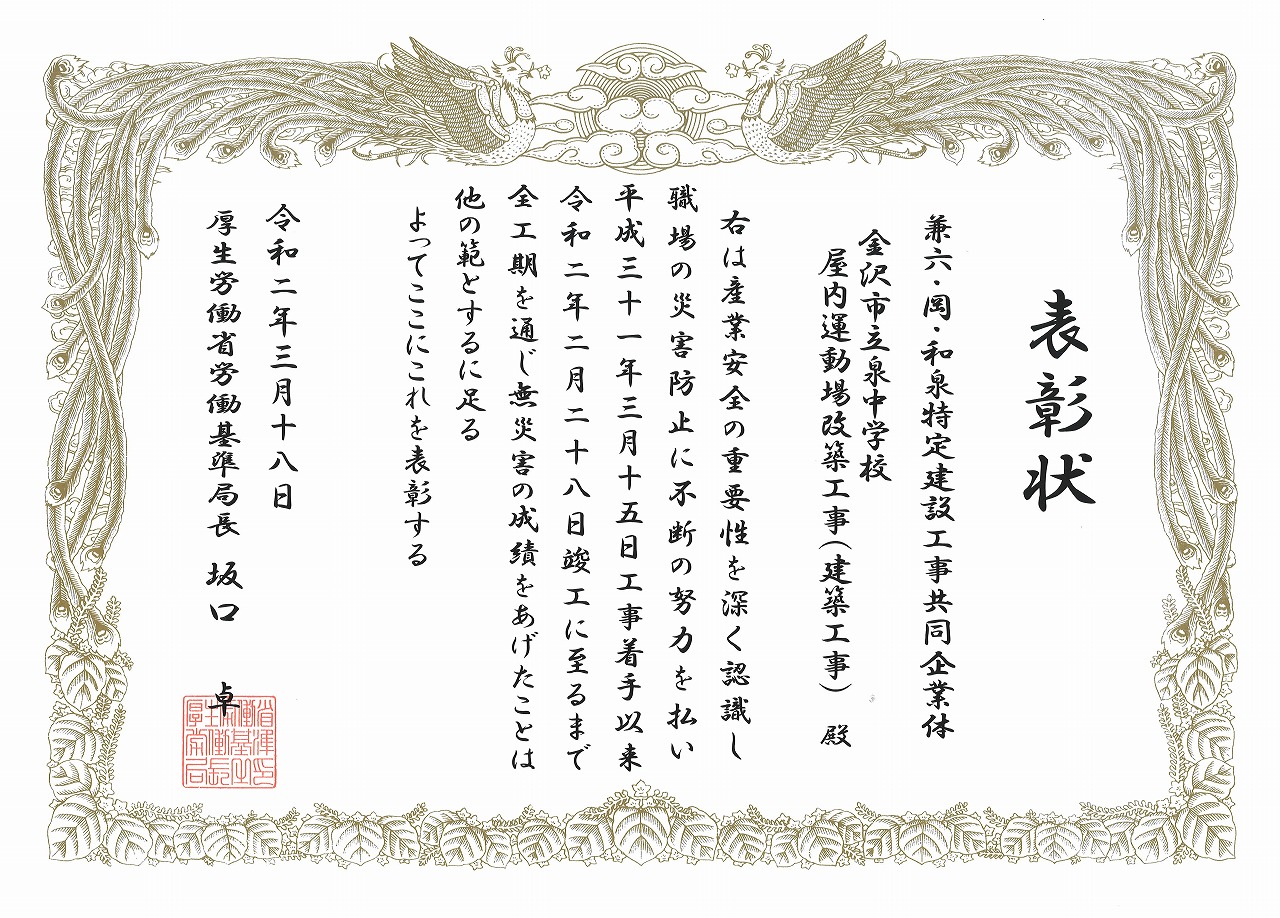 表彰状
兼六・岡・和泉特定建設工事共同企業体
金沢市立泉中学校
屋内運動場改築工事(建築工事) 殿
右は産業安全の重要性を深く認識し
職場の災害防止に不断の努力を払い
平成三十一年三月十五日工事着手以来
令和二年二月二十八日竣工に至るまで
全工期を通じ無災害の成績をあげたことは
他の範とするに足る
よってここにこれを表彰する
令和二年三月十八日
厚生労働省労働基準局長 坂口 卓